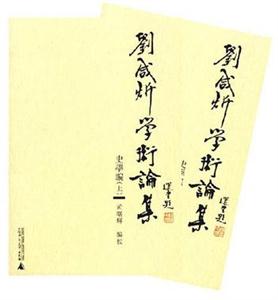 劉咸炘学術論集
史學編(上)
黄曙輝 編校
劉咸炘学術論集